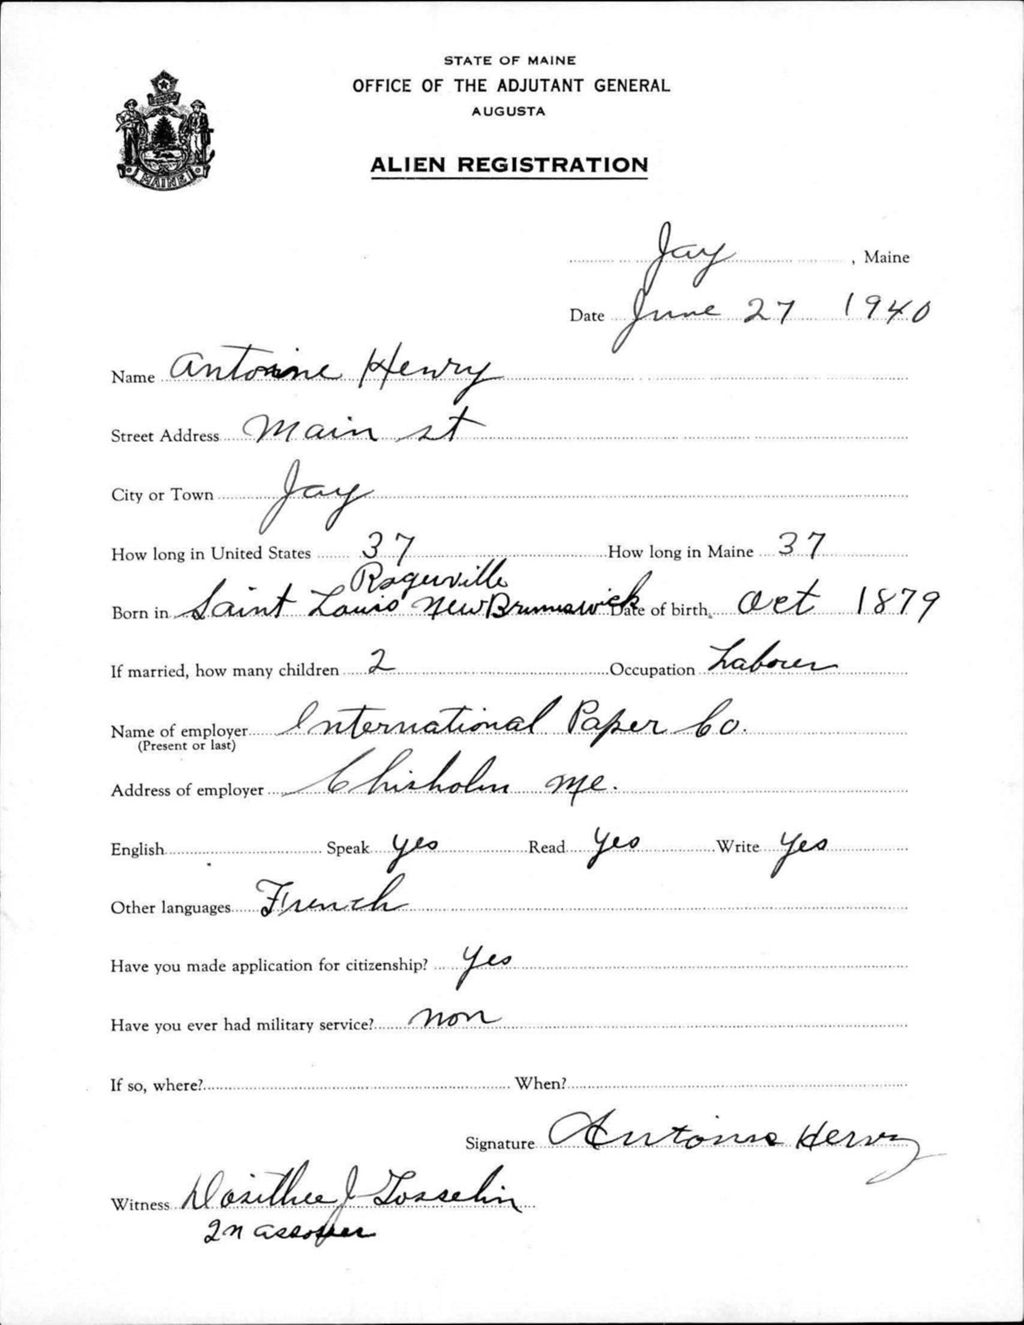 STATE OF MAINE
OFFICE OF THE ADJUTANT GENERAL
AUGUSTA
ALIEN REGISTRATION
MAINE
Jay, Maine
Date June 27 1940
Name Antoine Henry
Street Address Main st
City or Town Jay
How long in United States 37 How long in Maine 37
Rogerville
Born in Saint Louis New Brunswick Date of birth Oct 1879
If married, how many children 2 Occupation Laborer
Name of employer International Paper Co.
(Present or last)
Address of employer Chisholm Me.
English Speak yes Read Yes Write Yes
Other languages French
Have you made application for citizenship? Yes
Have you ever had military service? non
If so, where? When?
Signature Antoine Henry
Witness Dosithee J Gosselin
2n assosser